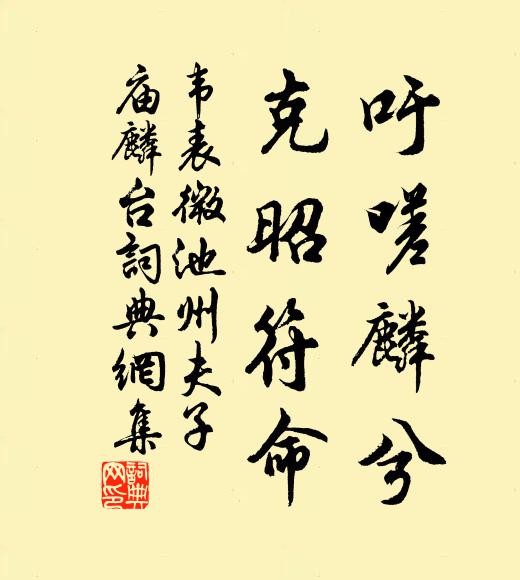 吁嗟麟兮
克昭符命
韦表微池州夫子
庙麟台词典網集
詞典网印